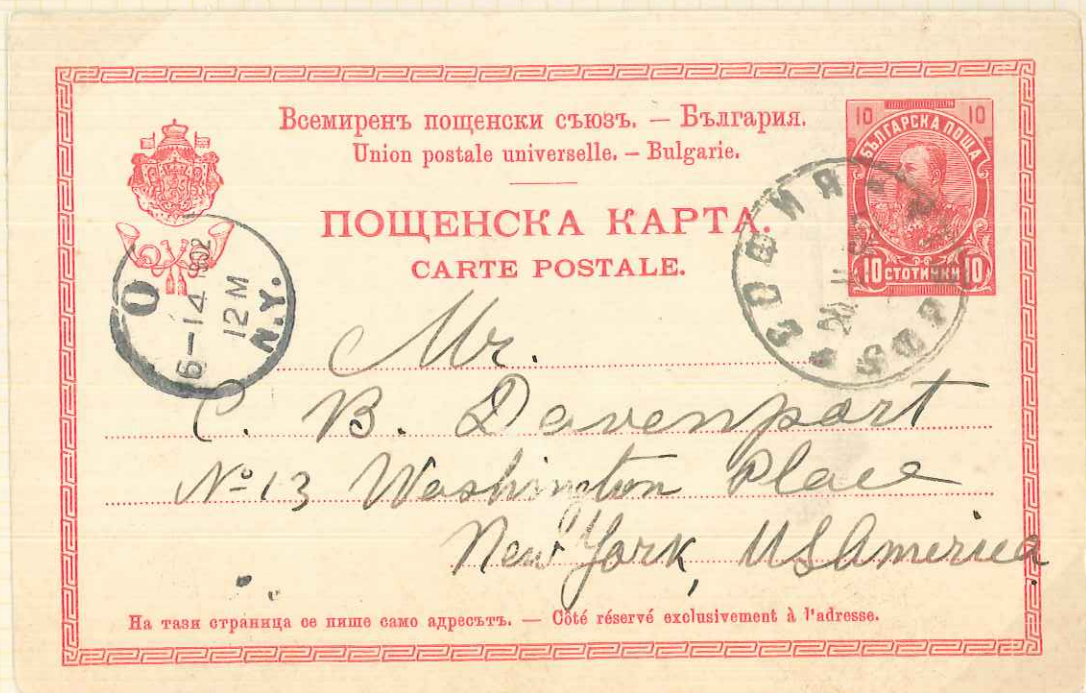 Всемиренъ пощенски съюзъ. — България.
Union postale universelle. — Bulgarie.
ПОЩЕНСКА КАРТА.
CARTE POSTALE.
10 10
БЪЛГАРСКА ПОЩА
10 СТОТИНКИ 10
СОФИЯ
O
6-14 1902
12 M
N.Y.
Mr.
C. B. Davenport
No 13 Washington Place
New York, US America
На тази страница се пише само адресътъ. — Côté réservé exclusivement à l'adresse.